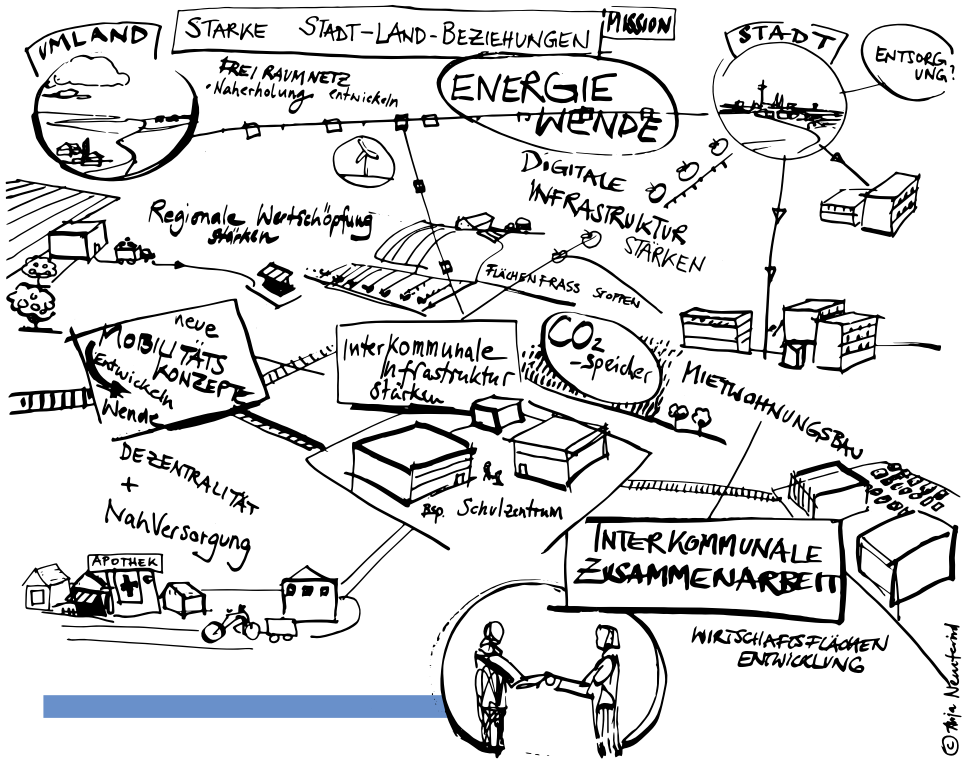 UMLAND
STARKE STADT-LAND-BEZIEHUNGEN
MISSION
STADT
ENTSORG
UNG?
FREIRAUMNETZ
• Naherholung entwickeln
ENERGIE
WENDE
DIGITALE
INFRASTRUKTUR
STÄRKEN
Regionale Wertschöpfung
stärken
FLÄCHENFRASS STOPPEN
neue
MOBILITÄTS
KONZEPTE
entwickeln
Wende
InterKommunale
Infrastruktur
stärken
CO2
-speicher
MIETWOHNUNGSBAU
DEZENTRALITÄT
+
NahVersorgung
Bsp. Schulzentrum
APOTHEK
INTERKOMMUNALE
ZUSAMMENARBEIT
WIRTSCHAFTSFLÄCHEN
ENTWICKLUNG
©